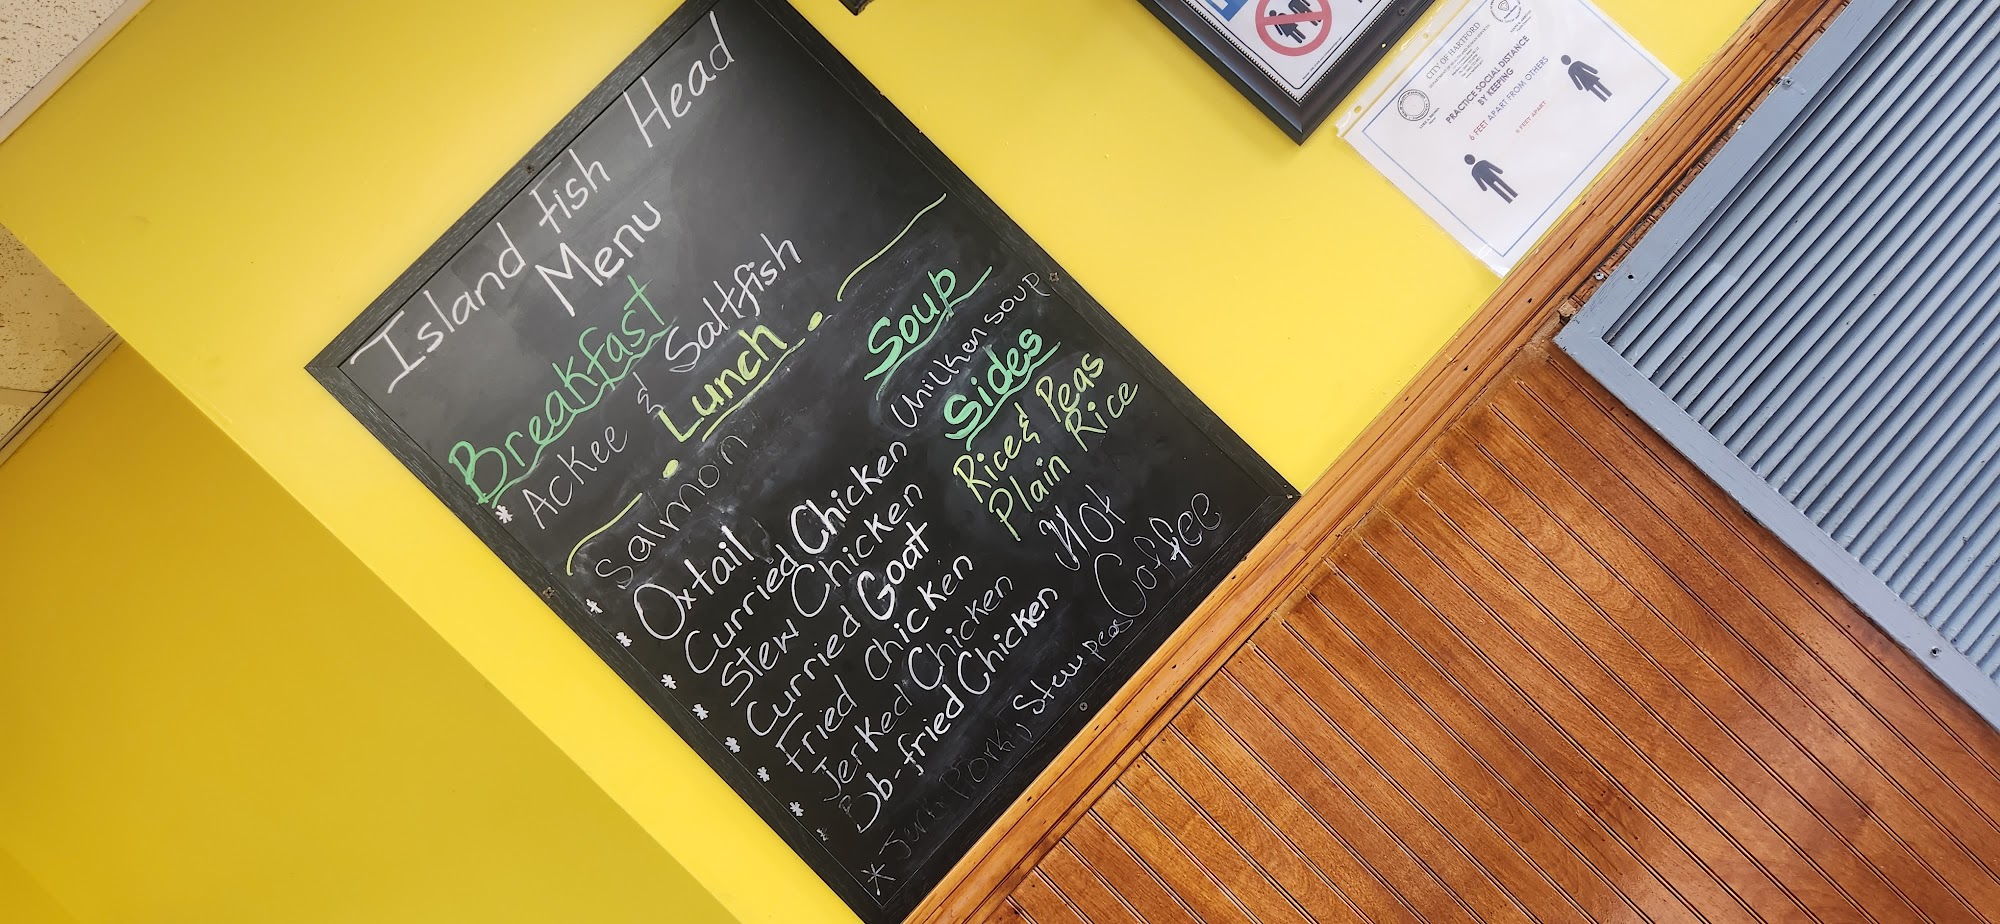 Island fish Head
Menu
Breakfast
* Ackee & Saltfish
Lunch
* Salmon
* Oxtail
* Curried Chicken
* Stew Chicken
* Curried Goat
* Fried Chicken
* Jerked Chicken
Bb-fried Chicken
* Jerk Pork
Stew peas
Soup
Chicken soup
Sides
Rice & Peas
Plain Rice
Hot
Coffee
CITY OF HARTFORD
PRACTICE SOCIAL DISTANCE
BY KEEPING
6 FEET APART FROM OTHERS
6 FEET APART